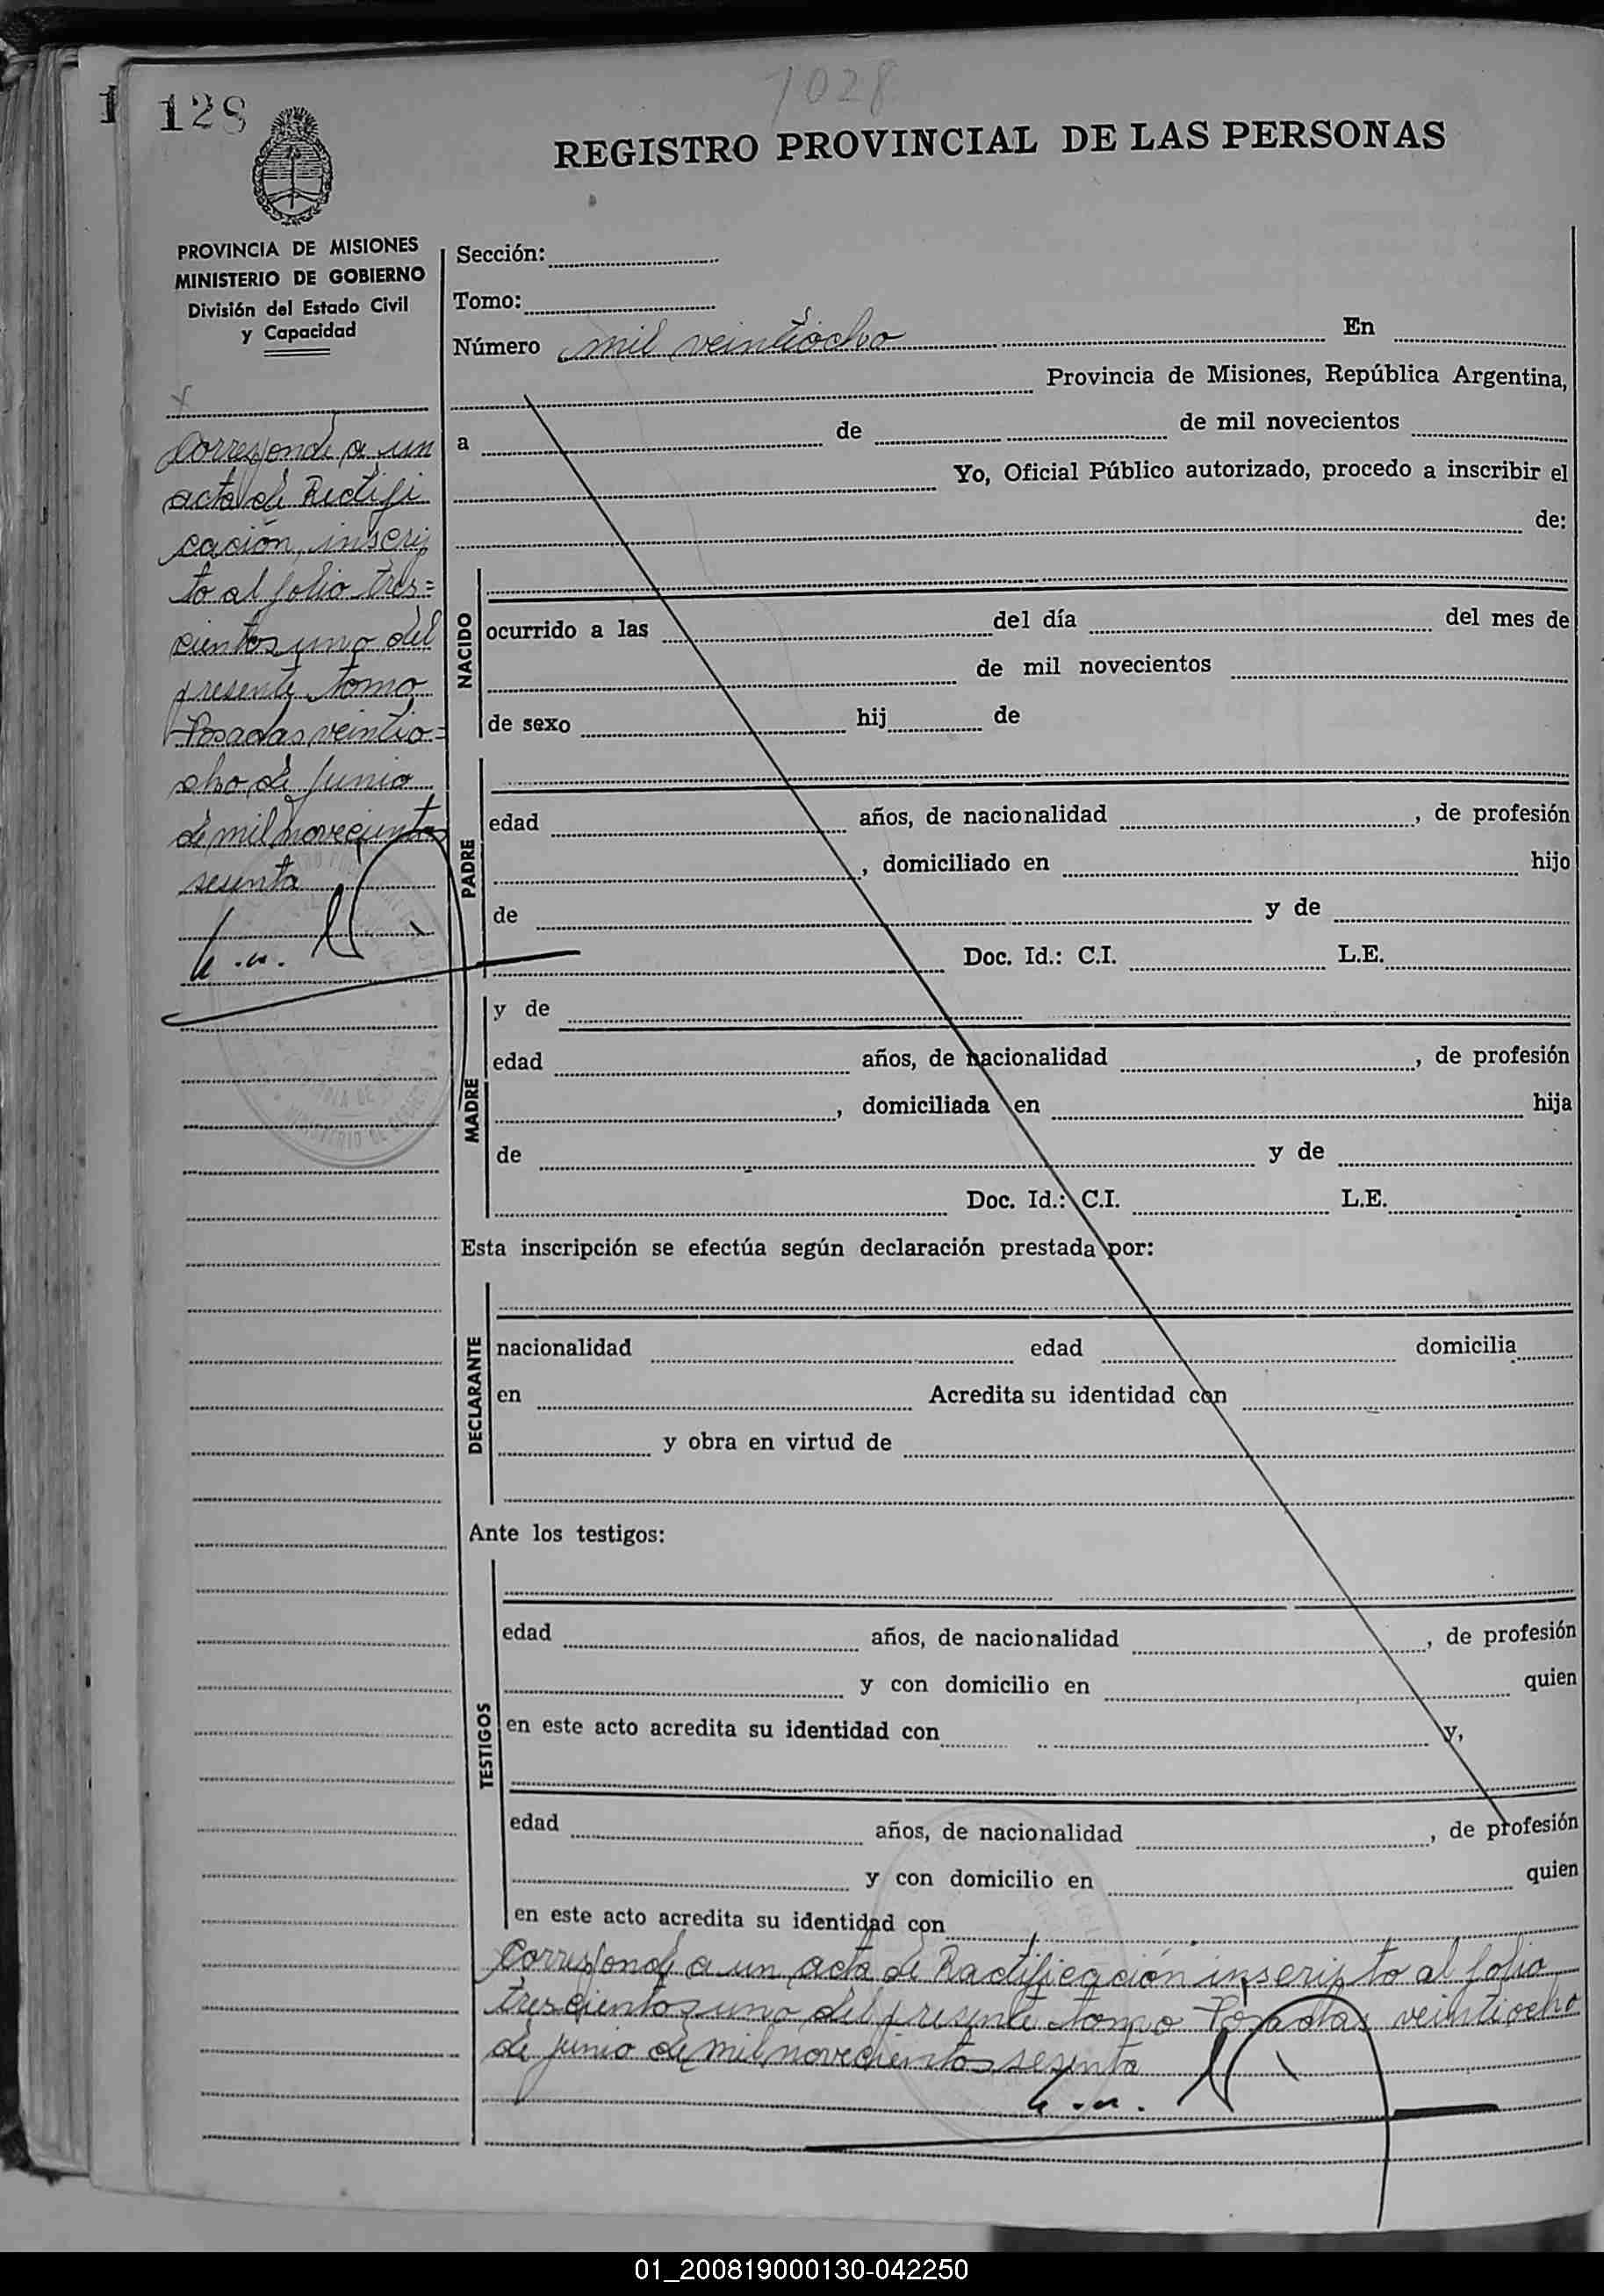 1028
1 128
REGISTRO PROVINCIAL DE LAS PERSONAS
PROVINCIA DE MISIONES
MINISTERIO DE GOBIERNO
División del Estado Civil
y Capacidad
Corresponde a un
acta de Rectifi
cación, inscrip
to al folio tres=
cientos uno del
presente tomo
Posadas veintio=
cho de junio
de mil novecientos
sesenta
Sección:
Tomo:
Número mil veintiocho En
Provincia de Misiones, República Argentina,
a de de mil novecientos
Yo, Oficial Público autorizado, procedo a inscribir el
de:
NACIDO
ocurrido a las del día del mes de
de mil novecientos
de sexo hij de
PADRE
edad años, de nacionalidad , de profesión
, domiciliado en hijo
de y de
Doc. Id.: C.I. L.E.
MADRE
y de
edad años, de nacionalidad , de profesión
, domiciliada en hija
de y de
Doc. Id.: C.I. L.E.
Esta inscripción se efectúa según declaración prestada por:
DECLARANTE
nacionalidad edad domicilia
en Acredita su identidad con
y obra en virtud de
Ante los testigos:
TESTIGOS
edad años, de nacionalidad , de profesión
y con domicilio en quien
en este acto acredita su identidad con y,
edad años, de nacionalidad , de profesión
y con domicilio en quien
en este acto acredita su identidad con
Corresponde a un acta de Ractificación inscripto al folio
trescientos uno del presente tomo Posadas veintiocho
de junio de mil novecientos sesenta
01_200819000130-042250